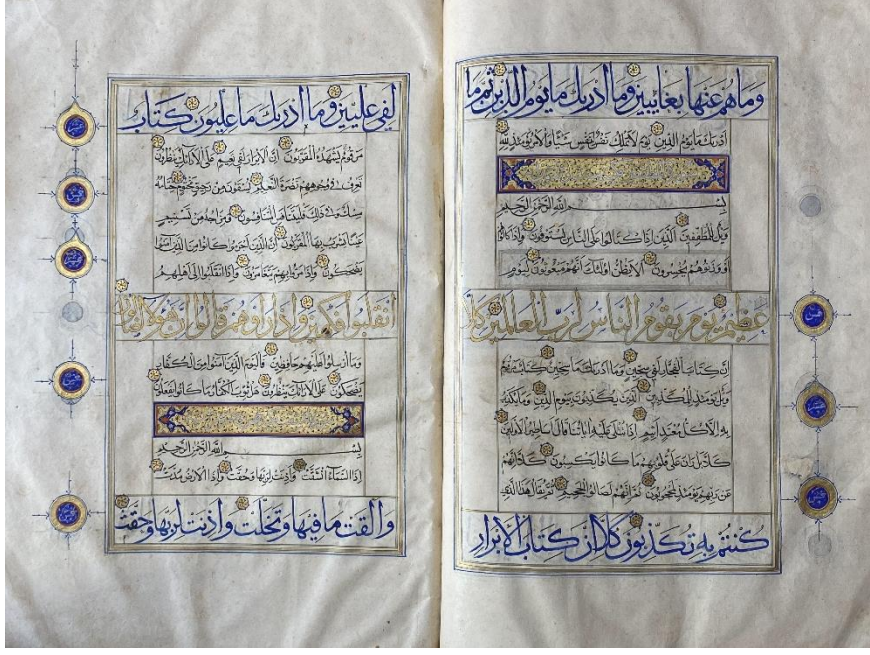 وما هم عنها بغايبين وما أدريك ما يوم الدين ثم ما
أدريك ما يوم الدين يوم لا تملك نفس لنفس شيئا والأمر يومئذ لله
بسم الله الرحمن الرحيم
ويل للمطففين الذين إذا اكتالوا على الناس يستوفون وإذا كالوا
أو وزنوهم يخسرون ألا يظن أولئك أنهم مبعوثون ليوم
عظيم يوم يقوم الناس لرب العالمين كلا
إن كتاب الفجار لفي سجين وما أدريك ما سجين كتاب مرقوم
ويل يومئذ للمكذبين الذين يكذبون بيوم الدين وما يكذب
به إلا كل معتد أثيم إذا تتلى عليه آياتنا قال أساطير الأولين
كلا بل ران على قلوبهم ما كانوا يكسبون كلا إنهم
عن ربهم يومئذ لمحجوبون ثم إنهم لصالوا الجحيم ثم يقال هذا الذي
كنتم به تكذبون كلا إن كتاب الأبرار
لفي عليين وما أدريك ما عليون كتاب
مرقوم يشهده المقربون إن الأبرار لفي نعيم على الأرائك ينظرون
تعرف في وجوههم نضرة النعيم يسقون من رحيق مختوم ختامه
مسك وفي ذلك فليتنافس المتنافسون ومزاجه من تسنيم
عينا يشرب بها المقربون إن الذين أجرموا كانوا من الذين آمنوا
يضحكون وإذا مروا بهم يتغامزون وإذا انقلبوا إلى أهلهم
انقلبوا فكهين وإذا رأوهم قالوا إن هؤلاء لضالون
وما أرسلوا عليهم حافظين فاليوم الذين آمنوا من الكفار
يضحكون على الأرائك ينظرون هل ثوب الكفار ما كانوا يفعلون
بسم الله الرحمن الرحيم
إذا السماء انشقت وأذنت لربها وحقت وإذا الأرض مدت
وألقت ما فيها وتخلت وأذنت لربها وحقت